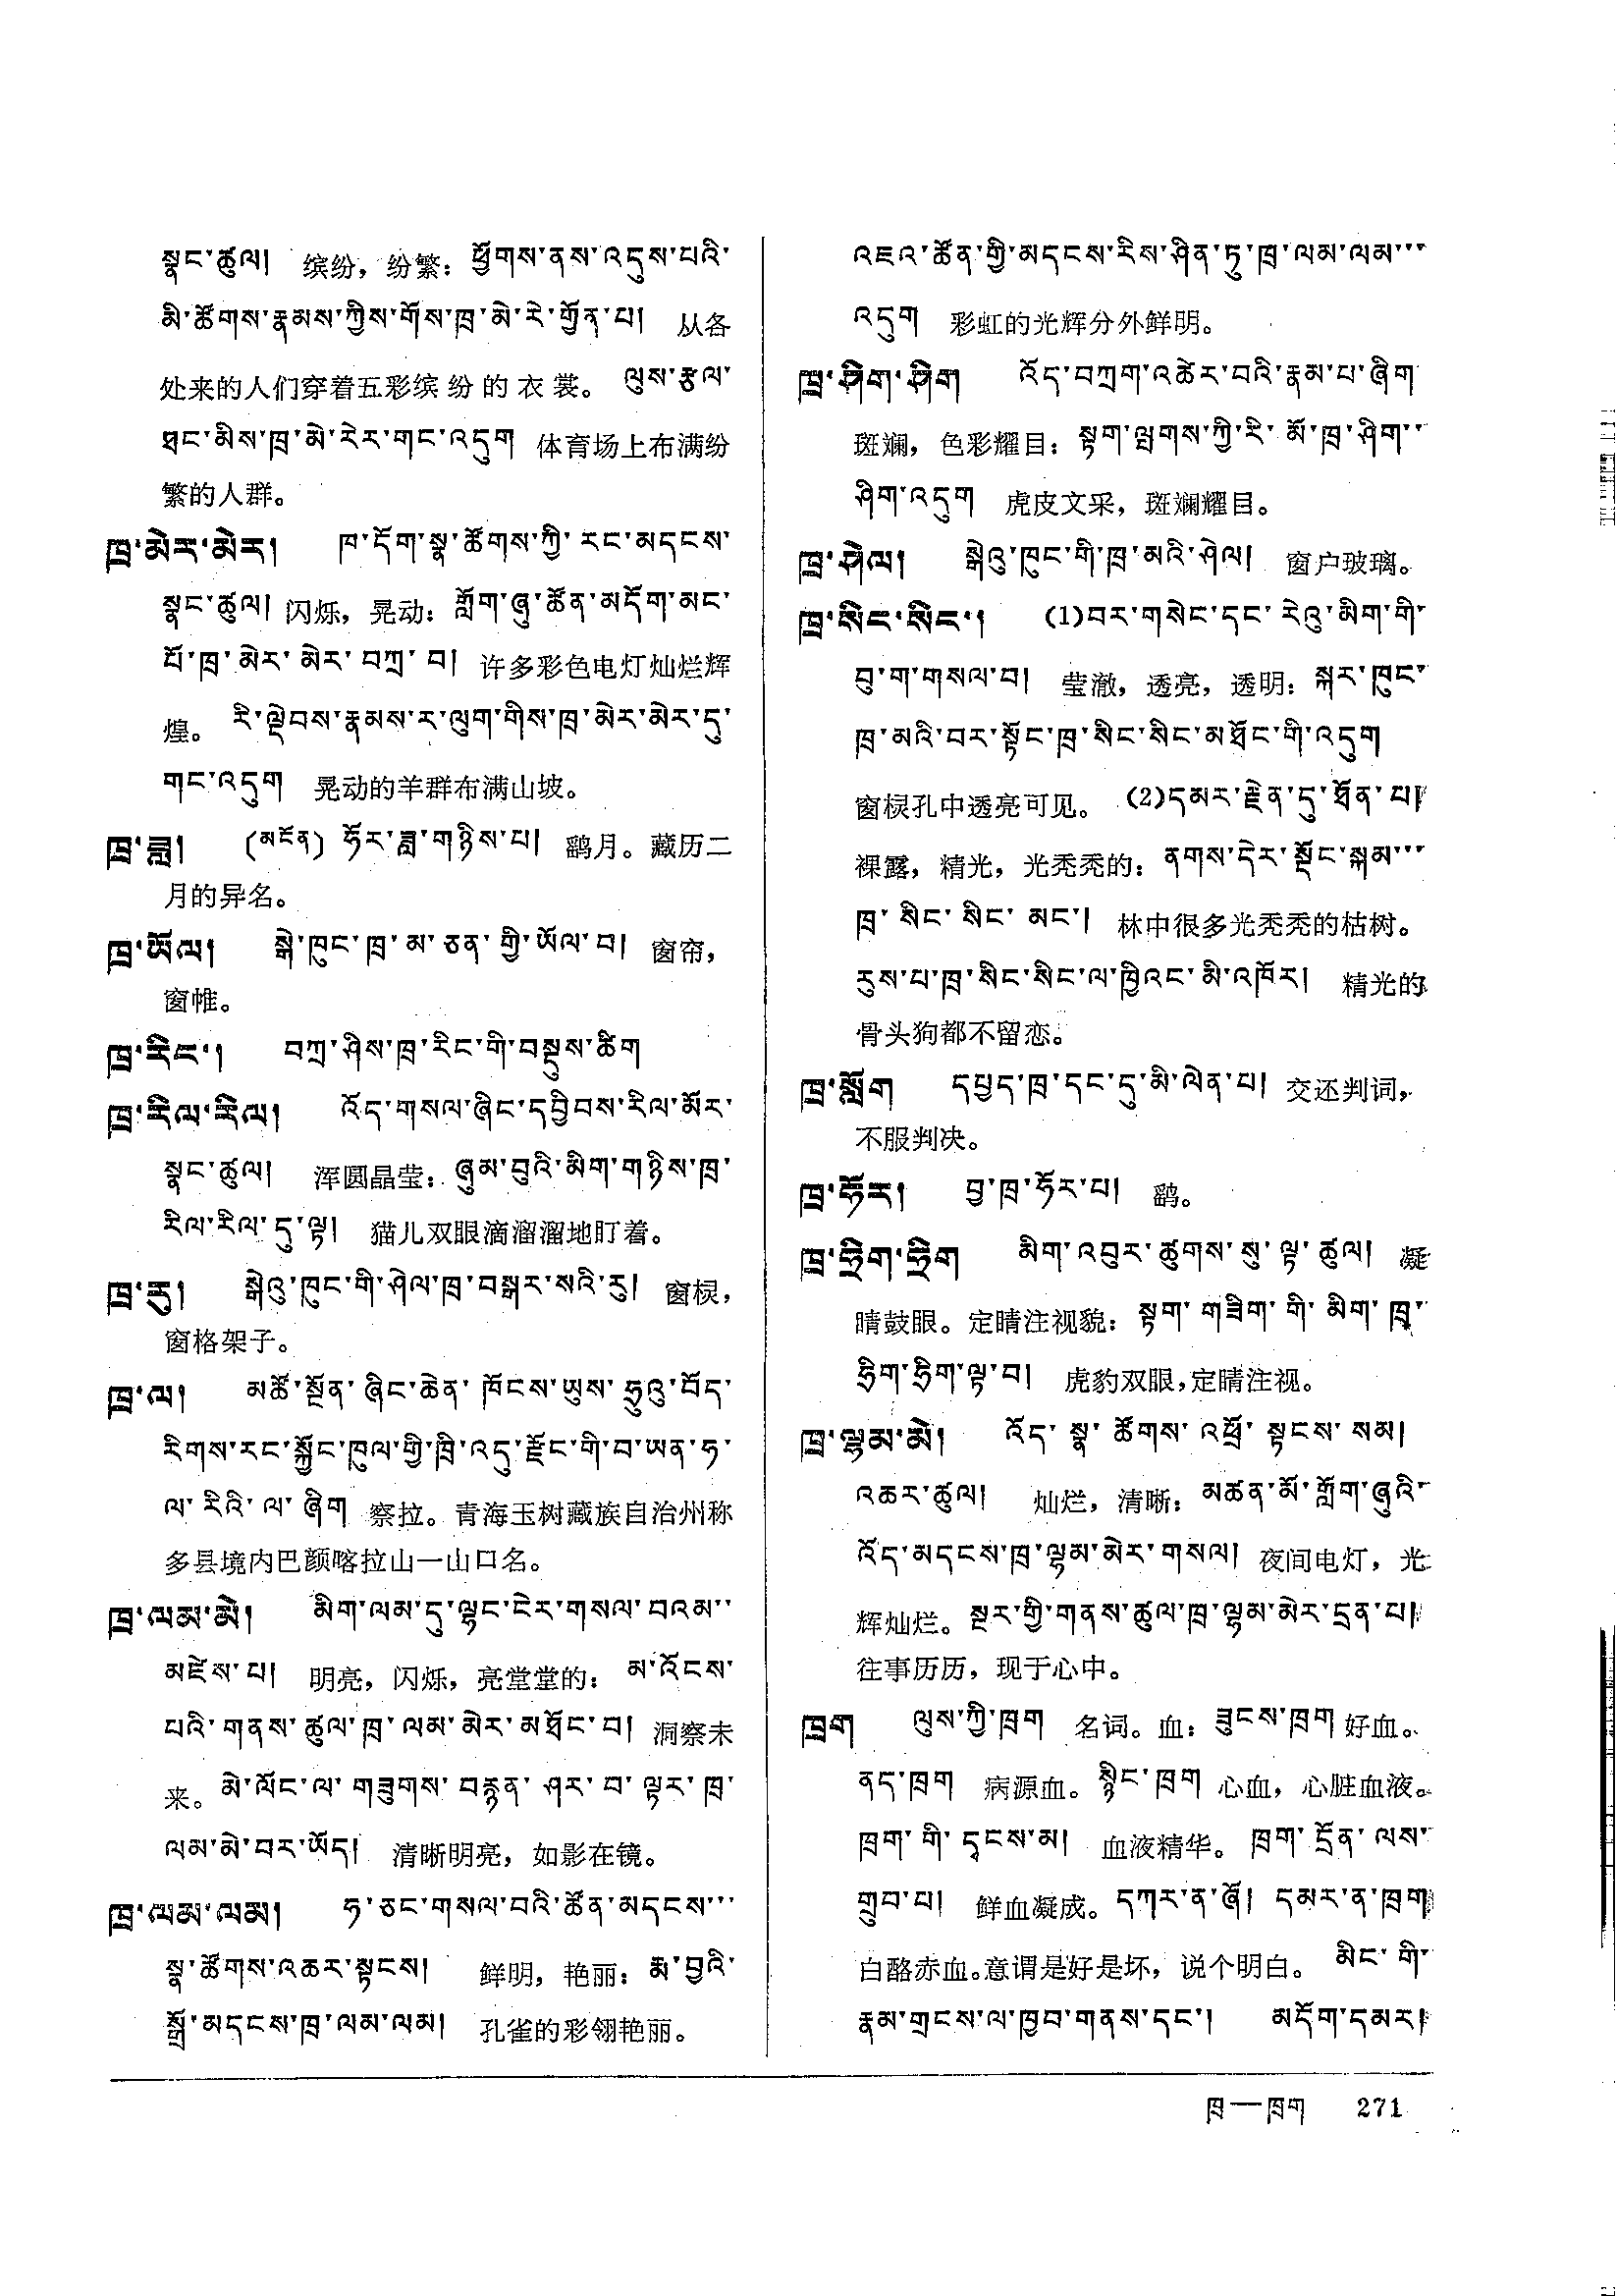 སྣང་ཚུལ། 缤纷，纷繁：ཕྱོགས་ནས་འདུས་པའི་
མི་ཚོགས་རྣམས་ཀྱིས་གོས་ཁྲ་མེ་རེ་གྱོན་པ། 从各
处来的人们穿着五彩缤纷的衣裳。ལུས་རྩལ་
ཐང་མིས་ཁྲ་མེ་རེར་གང་འདུག 体育场上布满纷
繁的人群。
ཁྲ་མེར་མེར། ཁ་དོག་སྣ་ཚོགས་ཀྱི་རང་མདངས་
སྣང་ཚུལ། 闪烁，晃动：གློག་ཞུ་ཚོན་མདོག་མང་
པོ་ཁྲ་མེར་མེར་བཀྲ་བ། 许多彩色电灯灿烂辉
煌。རི་ལྡེབས་རྣམས་ར་ལུག་གིས་ཁྲ་མེར་མེར་དུ་
གང་འདུག 晃动的羊群布满山坡。
ཁྲ་ཟླ། (མངོན) ཧོར་ཟླ་གཉིས་པ། 鹞月。藏历二
月的异名。
ཁྲ་ཡོལ། སྒེ་ཁུང་ཁྲ་མ་ཅན་གྱི་ཡོལ་བ། 窗帘，
窗帷。
ཁྲ་རིང་། བཀྲ་ཤིས་ཁྲ་རིང་གི་བསྡུས་ཚིག
ཁྲ་རིལ་རིལ། འོད་གསལ་ཞིང་དབྱིབས་རིལ་མོར་
སྣང་ཚུལ། 浑圆晶莹：ཞུམ་བུའི་མིག་གཉིས་ཁྲ་
རིལ་རིལ་དུ་ལྟ། 猫儿双眼滴溜溜地盯着。
ཁྲ་རུ། སྒེའུ་ཁུང་གི་ཤེལ་ཁྲ་བསྒར་སའི་རུ། 窗棂，
窗格架子。
ཁྲ་ལ། མཚོ་སྔོན་ཞིང་ཆེན་ཁོངས་ཡུས་ཧྲུའུ་བོད་
རིགས་རང་སྐྱོང་ཁུལ་གྱི་ཁྲི་འདུ་རྫོང་གི་བ་ཡན་ཧ་
ལ་རིའི་ལ་ཞིག 察拉。青海玉树藏族自治州称
多县境内巴颜喀拉山一山口名。
ཁྲ་ལམ་མེ། མིག་ལམ་དུ་ལྷང་ངེར་གསལ་བའམ་
མཛེས་པ། 明亮，闪烁，亮堂堂的：མ་འོངས་
པའི་གནས་ཚུལ་ཁྲ་ལམ་མེར་མཐོང་བ། 洞察未
来。མེ་ལོང་ལ་གཟུགས་བརྙན་ཤར་བ་ལྟར་ཁྲ་
ལམ་མེ་བར་ཡོད། 清晰明亮，如影在镜。
ཁྲ་ལམ་ལམ། ཧ་ཅང་གསལ་བའི་ཚོན་མདངས་
སྣ་ཚོགས་འཆར་སྟངས། 鲜明，艳丽：རྨ་བྱའི་
སྒྲོ་མདངས་ཁྲ་ལམ་ལམ། 孔雀的彩翎艳丽。
འཇའ་ཚོན་གྱི་མདངས་རིས་ཤིན་ཏུ་ཁྲ་ལམ་ལམ་
འདུག 彩虹的光辉分外鲜明。
ཁྲ་ཤིག་ཤིག འོད་བཀྲག་འཚེར་བའི་རྣམ་པ་ཞིག
斑斓，色彩耀目：སྟག་ལྤགས་ཀྱི་རི་མོ་ཁྲ་ཤིག་
ཤིག་འདུག 虎皮文采，斑斓耀目。
ཁྲ་ཤེལ། སྒེའུ་ཁུང་གི་ཁྲ་མའི་ཤེལ། 窗户玻璃。
ཁྲ་སིང་སིང་། (1)བར་གསེང་དང་རེའུ་མིག་གི་
བུ་ག་གསལ་བ། 莹澈，透亮，透明：སྐར་ཁུང་
ཁྲ་མའི་བར་སྟོང་ཁྲ་སིང་སིང་མཐོང་གི་འདུག
窗棂孔中透亮可见。(2)དམར་རྗེན་དུ་ཐོན་པ།
裸露，精光，光秃秃的：ནགས་དེར་སྡོང་སྐམ་
ཁྲ་སིང་སིང་མང་། 林中很多光秃秃的枯树。
རུས་པ་ཁྲ་སིང་སིང་ལ་ཁྱིའང་མི་འཁོར། 精光的
骨头狗都不留恋。
ཁྲ་སློག དཔྱད་ཁྲ་དང་དུ་མི་ལེན་པ། 交还判词，
不服判决。
ཁྲ་ཧོར། བྱ་ཁྲ་ཧོར་པ། 鹞。
ཁྲ་ཧྲིག་ཧྲིག མིག་འབུར་ཚུགས་སུ་ལྟ་ཚུལ། 凝
睛鼓眼。定睛注视貌：སྟག་གཟིག་གི་མིག་ཁྲ་
ཧྲིག་ཧྲིག་ལྟ་བ། 虎豹双眼，定睛注视。
ཁྲ་ལྷམ་མེ། འོད་སྣ་ཚོགས་འཕྲོ་སྟངས་སམ།
འཆར་ཚུལ། 灿烂，清晰：མཚན་མོ་གློག་ཞུའི་
འོད་མདངས་ཁྲ་ལྷམ་མེར་གསལ། 夜间电灯，光
辉灿烂。སྔར་གྱི་གནས་ཚུལ་ཁྲ་ལྷམ་མེར་དྲན་པ།
往事历历，现于心中。
ཁྲག ལུས་ཀྱི་ཁྲག 名词。血：ཟུངས་ཁྲག 好血。
ནད་ཁྲག 病源血。སྙིང་ཁྲག 心血，心脏血液。
ཁྲག་གི་དྭངས་མ། 血液精华。ཁྲག་དྲོན་ལས་
གྲུབ་པ། 鲜血凝成。དཀར་ན་ཞོ། དམར་ན་ཁྲག
白酪赤血。意谓是好是坏，说个明白。མིང་གི་
རྣམ་གྲངས་ལ་ཁྱབ་གནས་དང་། མདོག་དམར།
ཁྲ—ཁྲག 271